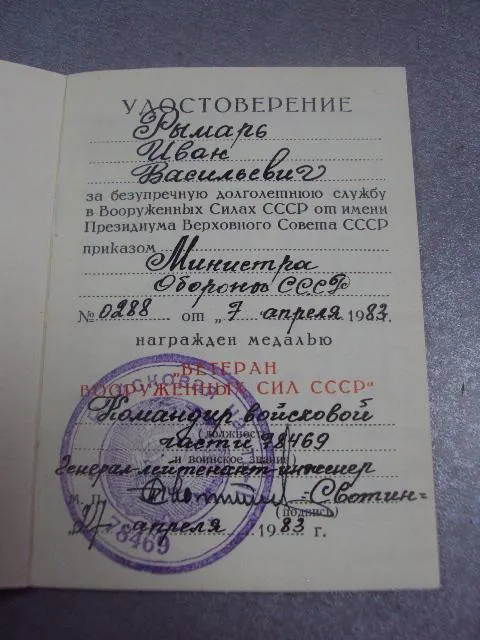 УДОСТОВЕРЕНИЕ
Рымарь
Иван
Васильевич
за безупречную долголетнюю службу
в Вооруженных Силах СССР от имени
Президиума Верховного Совета СССР
приказом Министра
Обороны СССР
№ 0288 от „7 апреля 1983 г.
награжден медалью
„ВЕТЕРАН
ВООРУЖЕННЫХ СИЛ СССР“
Командир войсковой
части 78469
(должность
и воинское звание)
Генерал-лейтенант-инженер
=Светин=
м. п. (подпись)
„27 апреля 1983 г.
78469